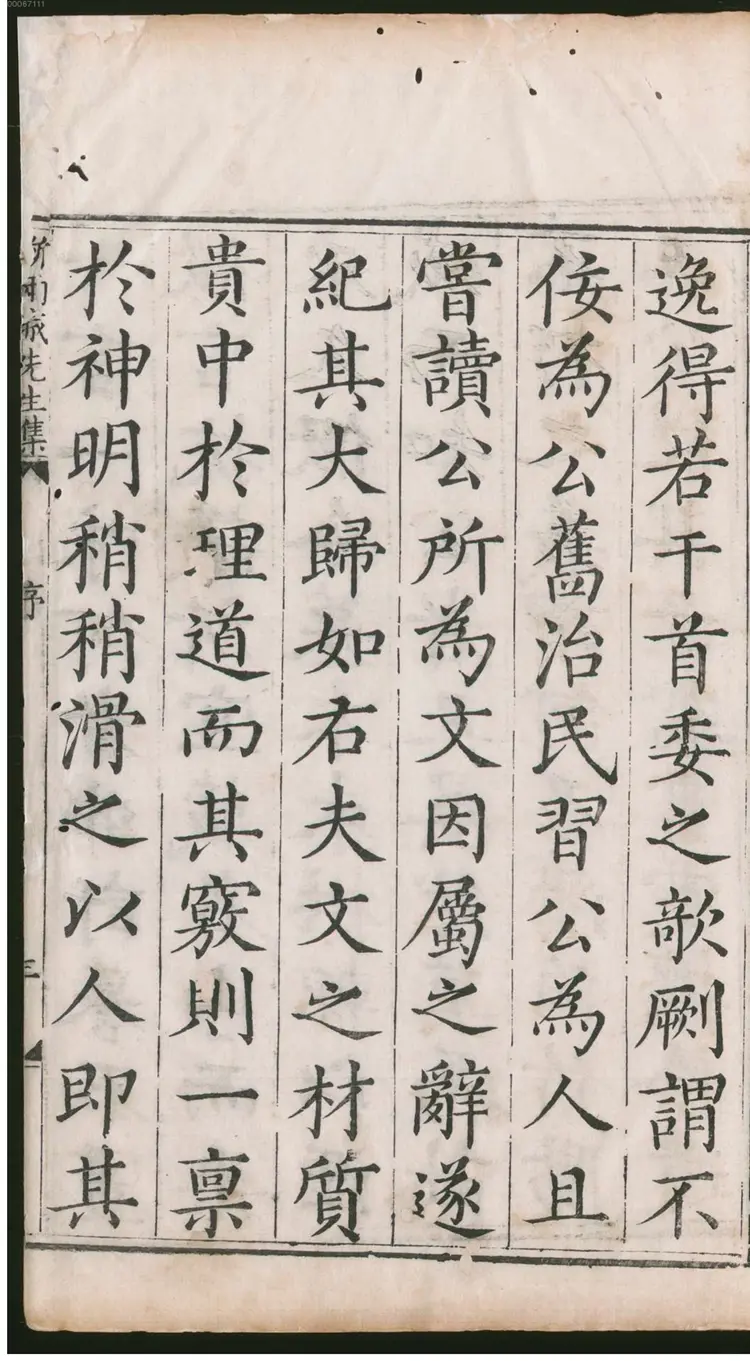 00067111
逸得若干首委之歆劂謂不
佞為公舊治民習公為人且
嘗讀公所為文因屬之辭遂
紀其大歸如右夫文之材質
貴中於理道而其竅則一禀
於神明稍稍滑之以人即其
先生集
序
三